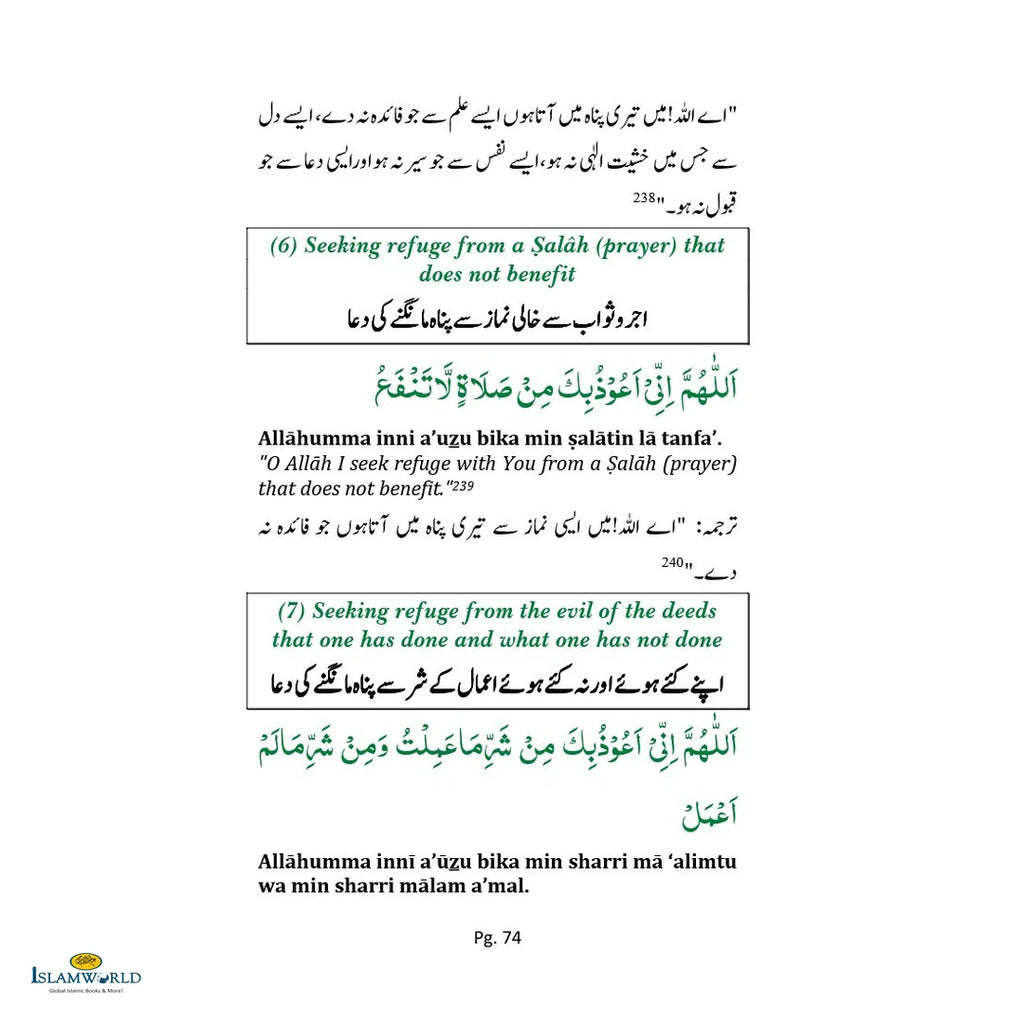 "اے اللہ!میں تیری پناہ میں آتاہوں ایسے علم سے جو فائدہ نہ دے، ایسے دل
سے جس میں خشیت الٰہی نہ ہو،ایسے نفس سے جو سیر نہ ہو اور ایسی دعا سے جو
قبول نہ ہو۔"238
(6) Seeking refuge from a Ṣalâh (prayer) that
does not benefit
اجر و ثواب سے خالی نماز سے پناہ مانگنے کی دعا
اَللّٰهُمَّ اِنِّيْ اَعُوْذُبِكَ مِنْ صَلَاةٍ لَّا تَنْفَعُ
Allāhumma inni a’uẕu bika min ṣalātin lā tanfa’.
"O Allāh I seek refuge with You from a Ṣalāh (prayer)
that does not benefit."239
ترجمہ: "اے اللہ!میں ایسی نماز سے تیری پناہ میں آتاہوں جو فائدہ نہ
دے۔"240
(7) Seeking refuge from the evil of the deeds
that one has done and what one has not done
اپنے کئے ہوئے اور نہ کئے ہوئے اعمال کے شر سے پناہ مانگنے کی دعا
اَللّٰهُمَّ اِنِّيْ اَعُوْذُبِكَ مِنْ شَرِّمَاعَمِلْتُ وَمِنْ شَرِّمَالَمْ
اَعْمَلْ
Allāhumma innī a’ūẕu bika min sharri mā ‘alimtu
wa min sharri mālam a’mal.
Pg. 74
ISLAMWORLD
Global Islamic Books & More!